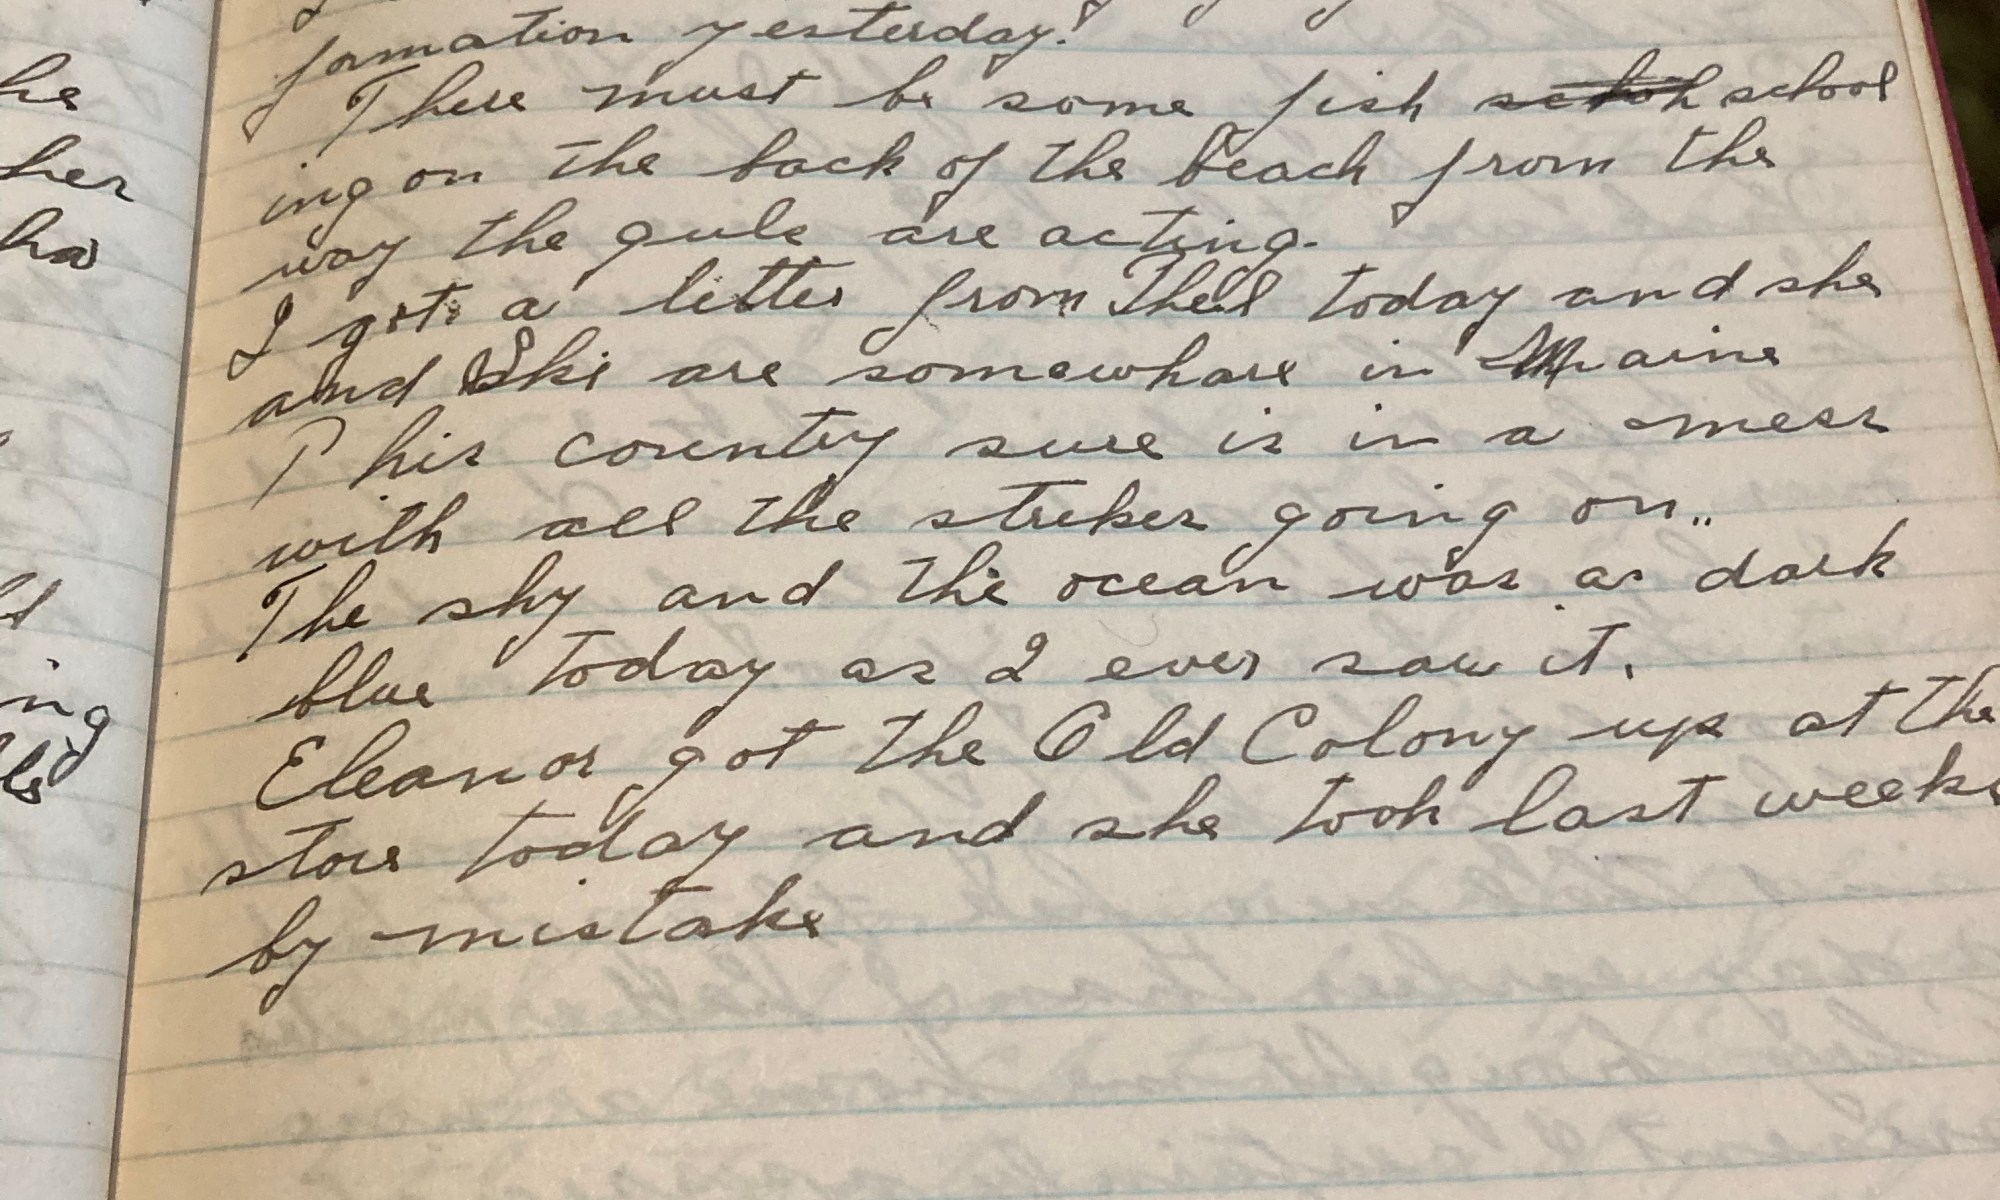 formation yesterday!
There must be some fish school
ing on the back of the beach from the
way the guls are acting.
I got a letter from Thel today and she
and Ski are somewhare in Maine
This country sure is in a mess
with all the strikes going on..
The sky and the ocean was as dark
blue today as I ever saw it.
Eleanor got the Old Colony up at the
store today and she took last weeks
by mistake
he
her
ha
ing